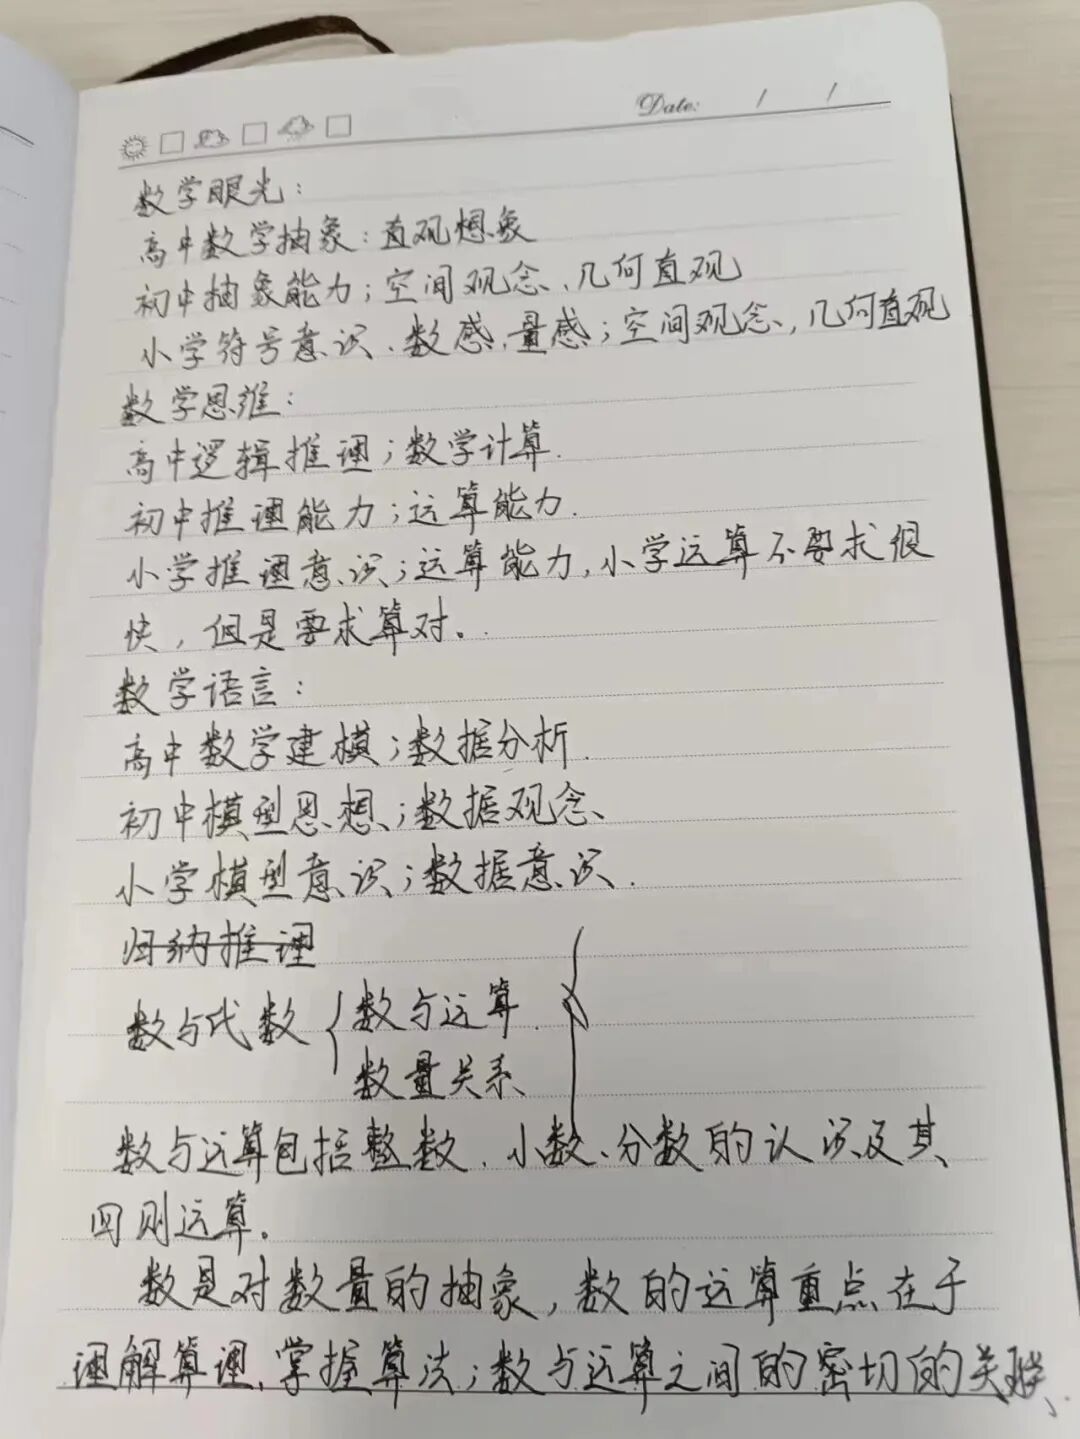 Date: / /
数学眼光：
高中数学抽象：直观想象
初中抽象能力；空间观念、几何直观
小学符号意识、数感、量感；空间观念，几何直观
数学思维：
高中逻辑推理；数学计算.
初中推理能力；运算能力.
小学推理意识；运算能力，小学运算不要求很
快，但是要求算对。
数学语言：
高中数学建模；数据分析.
初中模型思想；数据观念
小学模型意识；数据意识.
归纳推理
数与代数{数与运算.
数量关系
数与运算包括整数、小数、分数的认识及其
四则运算。
数是对数量的抽象，数的运算重点在于
理解算理、掌握算法；数与运算之间的密切的关联